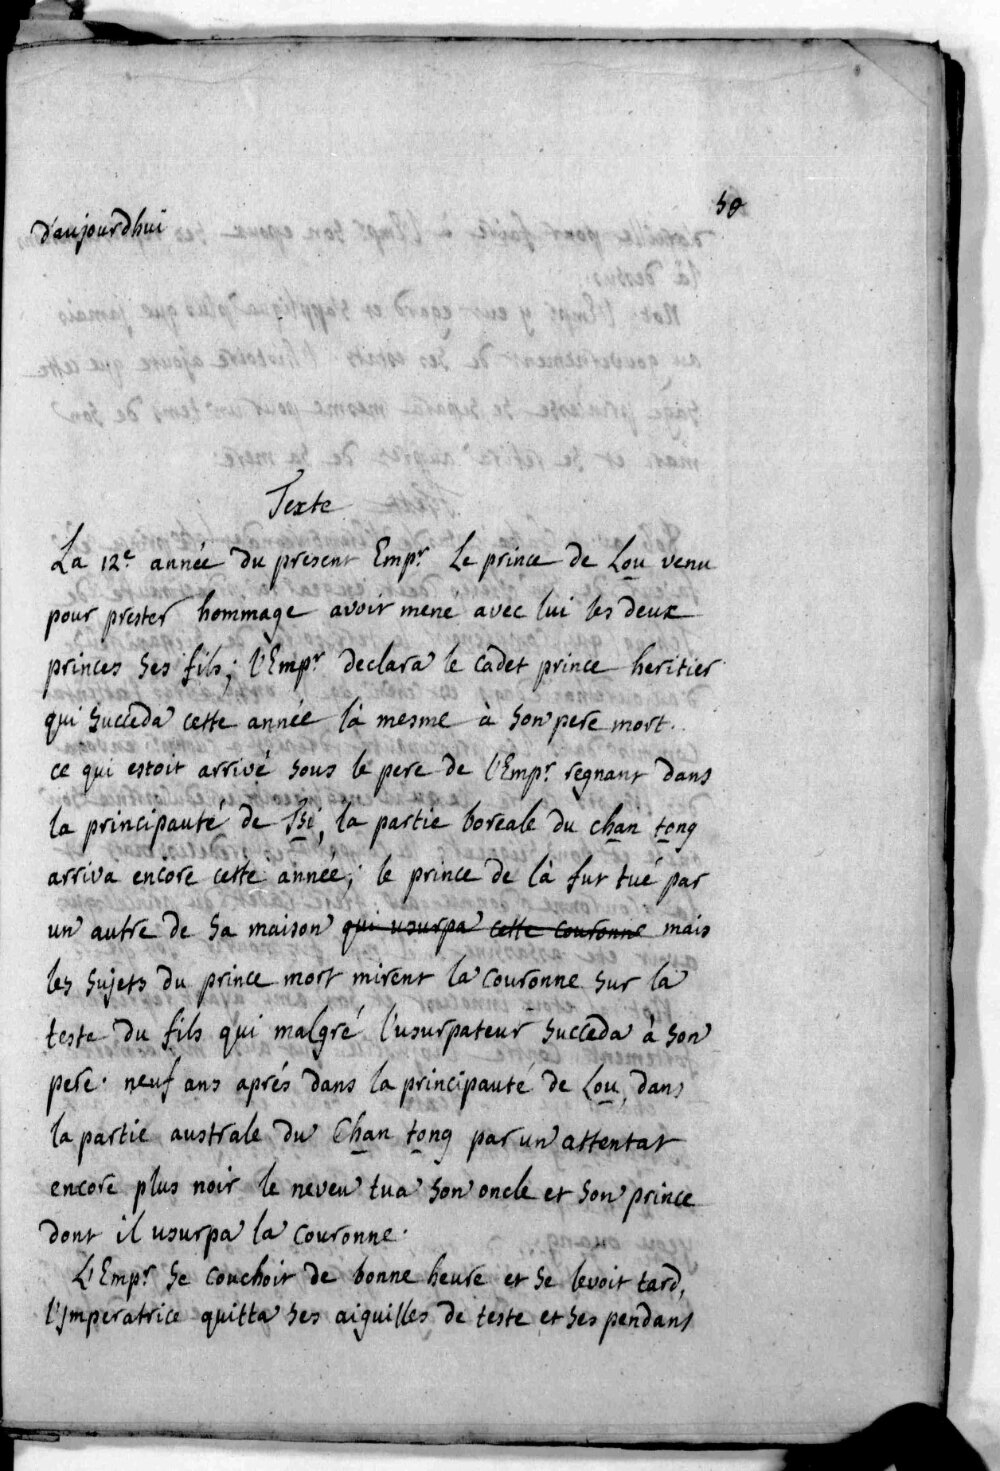 50
d'aujourdhui
Texte
La 12e année du present Empr Le prince de Lou venu
pour prester hommage avoit mene avec lui les deux
princes ses fils; l'Empr declara le cadet prince heritier
qui succeda cette année là mesme à son pere mort.
ce qui estoit arrivé sous le pere de l'Empr regnant dans
la principauté de Tsi, la partie boreale du chan tong
arriva encore cette année; le prince de là fut tué par
un autre de sa maison qui usurpa cette couronne mais
les sujets du prince mort mirent la couronne sur la
teste du fils qui malgré l'usurpateur succeda à son
pere. neuf ans aprés dans la principauté de Lou, dans
la partie australe du Chan tong par un attentat
encore plus noir le neveu tua son oncle et son prince
dont il usurpa la couronne.
L'Empr se couchoit de bonne heure et se levoit tard,
l'Jmperatrice quitta ses aiguilles de teste et ses pendans